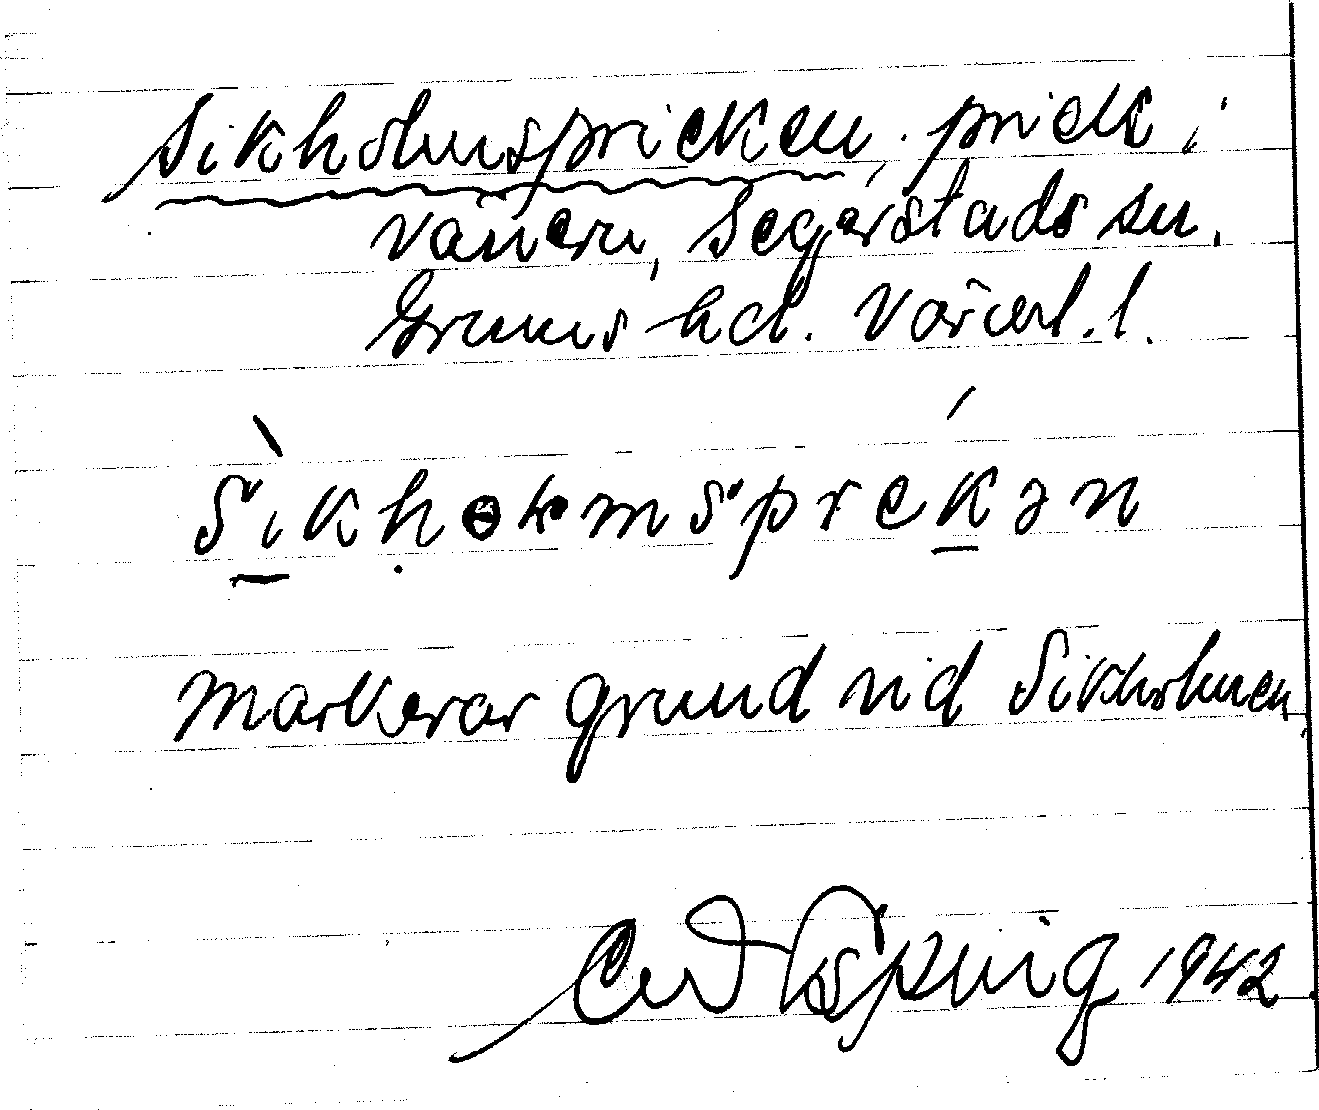 Sikholmspricken, prick i
Vänern, Segerstads sn,
Grums hd. Värml. l.
sikhɵɫmsprekən
markerar grund vid Sikholmen
1942